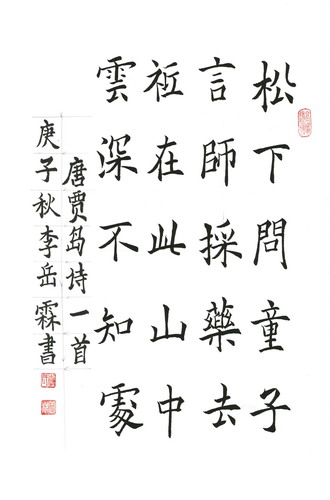 松下問童子
言師採藥去
祗在此山中
雲深不知處
唐贾岛诗一首
庚子秋李岳霖書